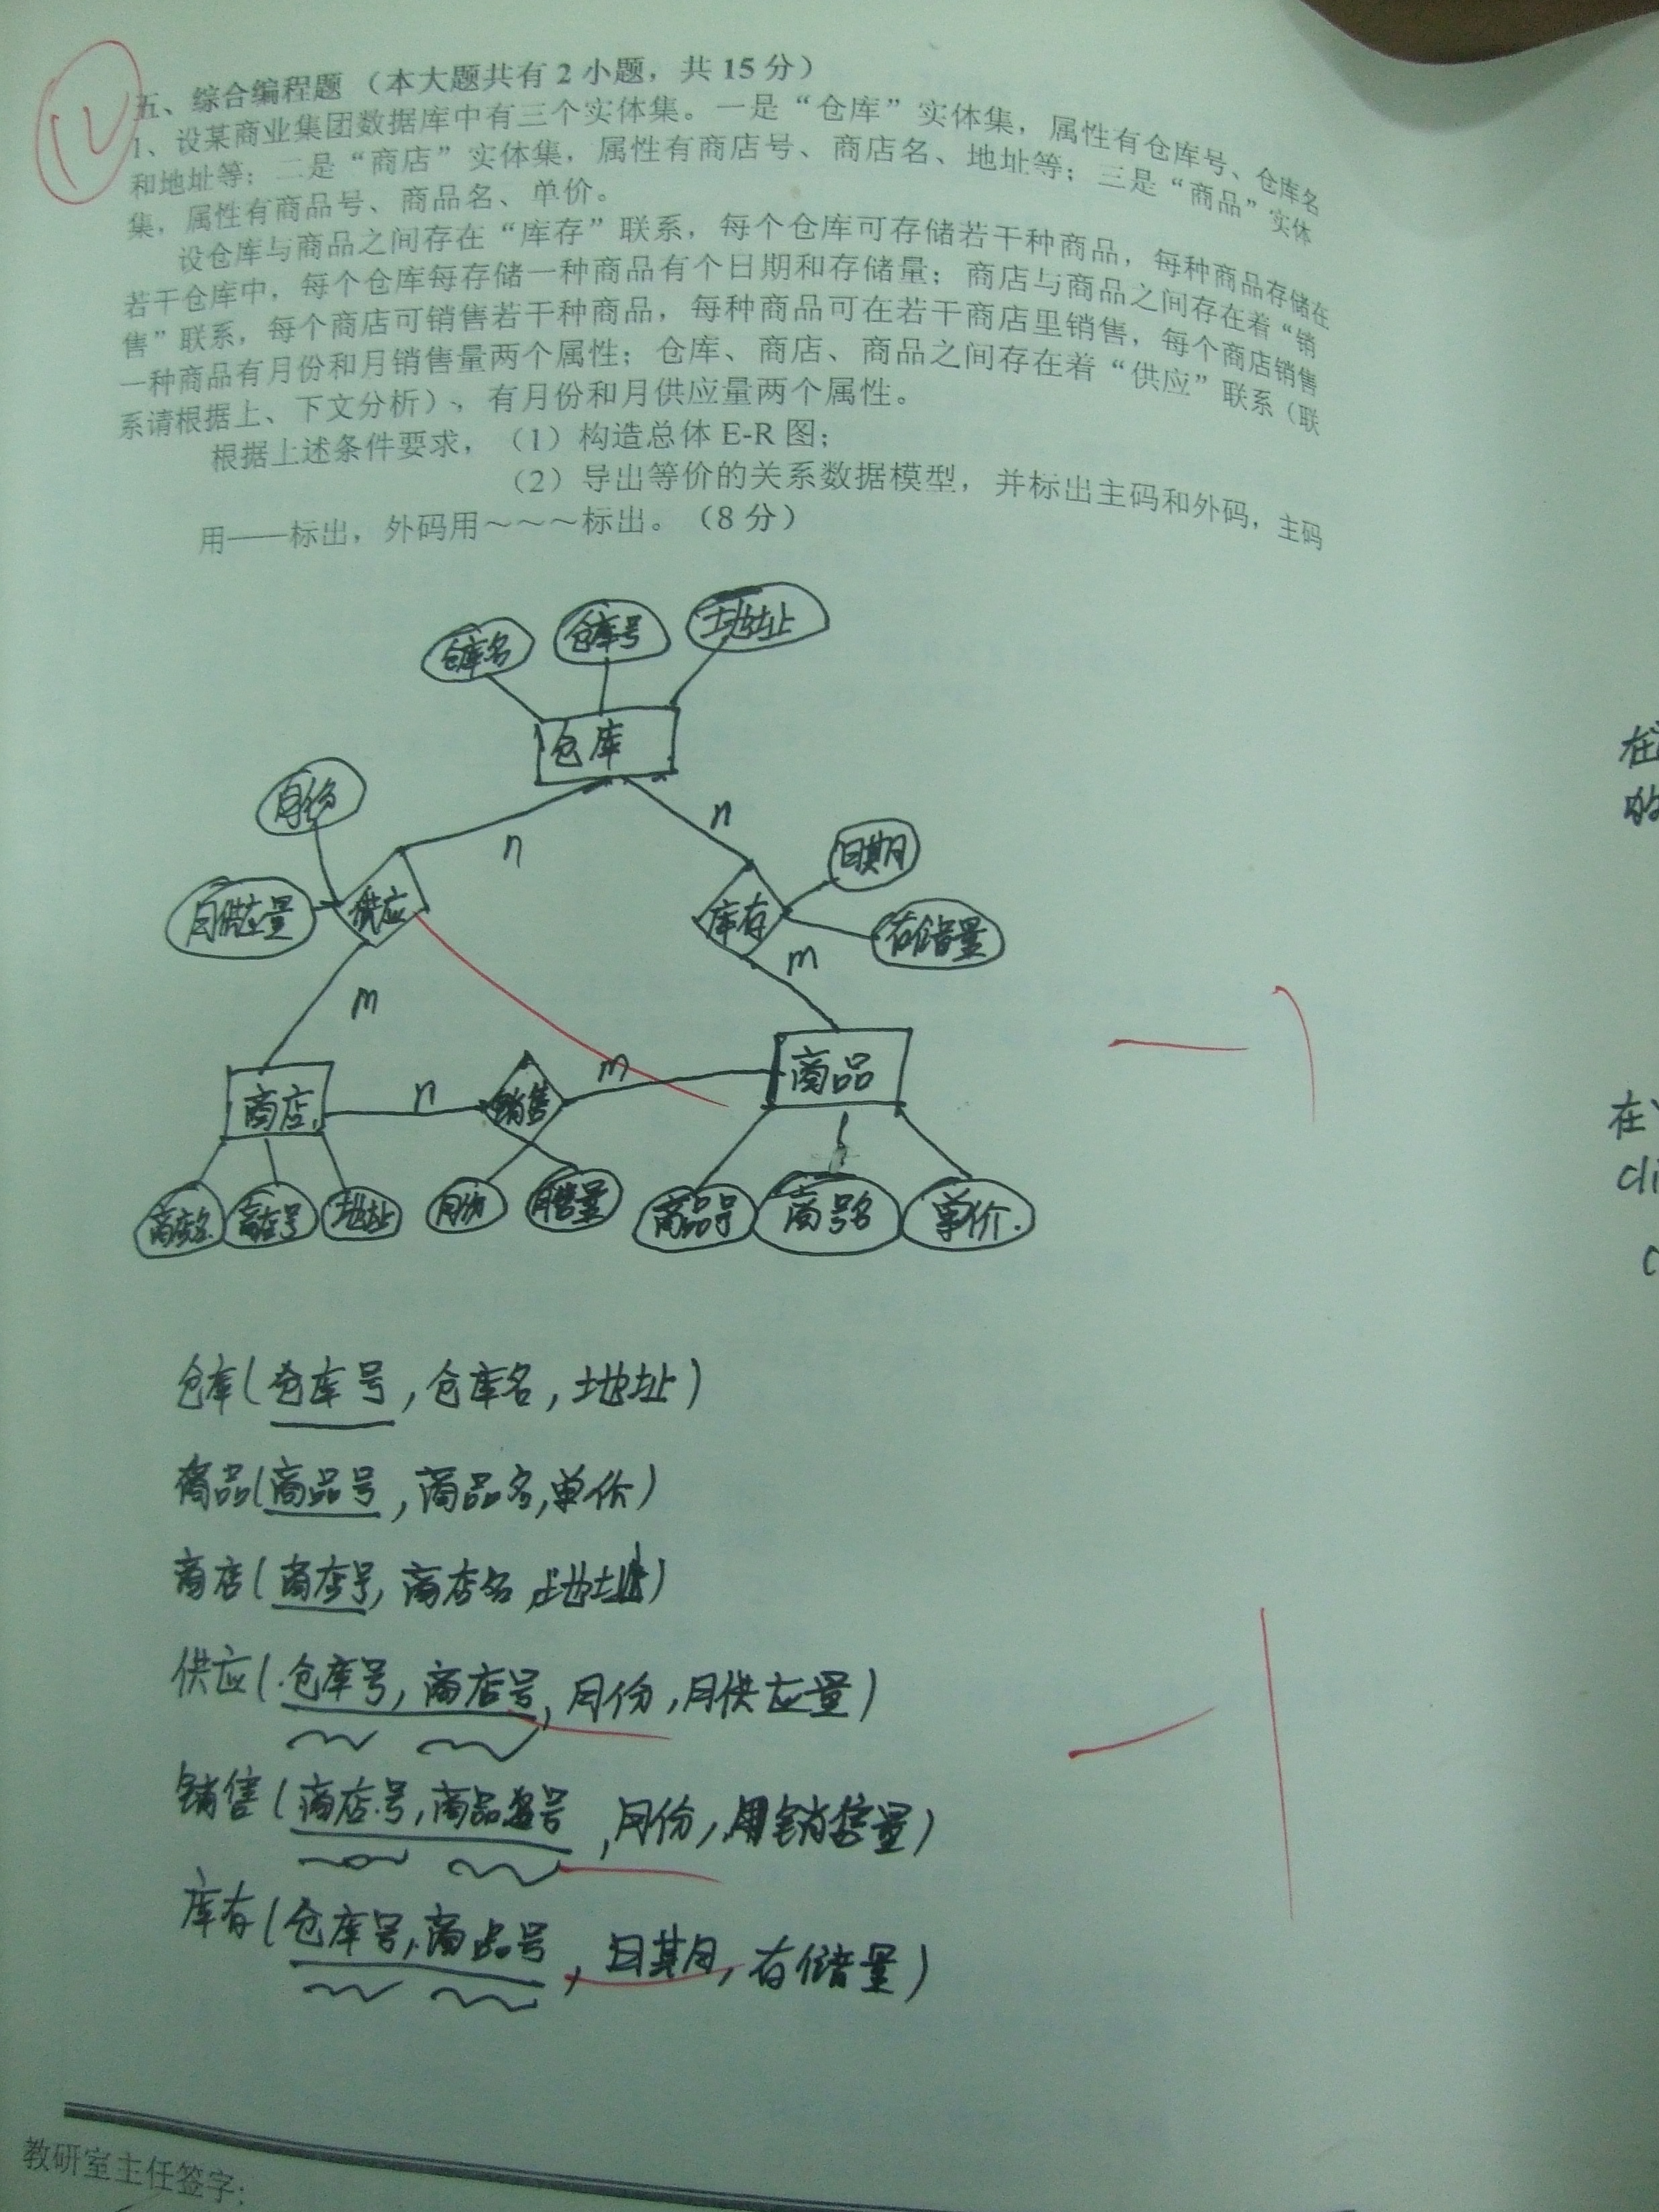 12
五、综合编程题（本大题共有 2 小题，共 15 分）
1、设某商业集团数据库中有三个实体集。一是“仓库”实体集，属性有仓库号、仓库名
和地址等；二是“商店”实体集，属性有商店号、商店名、地址等；三是“商品”实体
集，属性有商品号、商品名、单价。
设仓库与商品之间存在“库存”联系，每个仓库可存储若干种商品，每种商品存储在
若干仓库中，每个仓库每存储一种商品有个日期和存储量；商店与商品之间存在着“销
售”联系，每个商店可销售若干种商品，每种商品可在若干商店里销售，每个商店销售
一种商品有月份和月销售量两个属性；仓库、商店、商品之间存在着“供应”联系（联
系请根据上、下文分析）、有月份和月供应量两个属性。
根据上述条件要求，（1）构造总体 E-R 图；
（2）导出等价的关系数据模型，并标出主码和外码，主码
用——标出，外码用～～～标出。（8 分）
仓库名 仓库号 地址
仓库
月份
n n
日期
月供应量 供应 库存 存储量
m m
商店 n 销售 m 商品
商店名 商店号 地址 月份 月售量 商品号 商号名 单价
仓库(仓库号,仓库名,地址)
商品(商品号,商品名,单价)
商店(商店号,商店名,地址)
供应(仓库号,商店号,月份,月供应量)
销售(商店号,商品号,月份,月销售量)
库存(仓库号,商品号,日期,存储量)
-1
-1
教研室主任签字:
在
的
在
cli